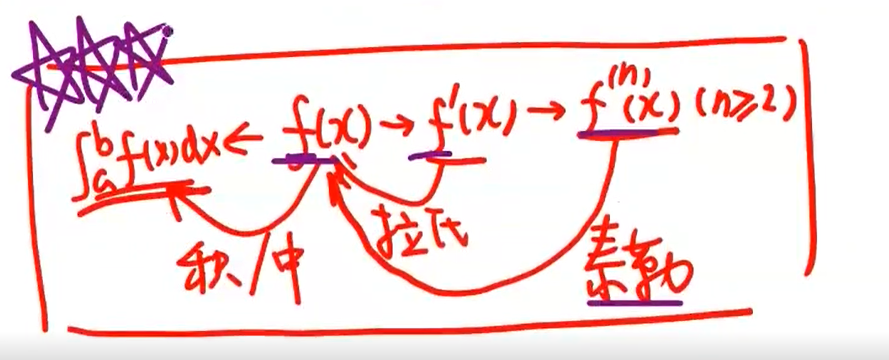 ∫ₐᵇ f(x)dx ← f(x) → f'(x) → f⁽ⁿ⁾(x) (n≥2)
积/中 拉氏 泰勒